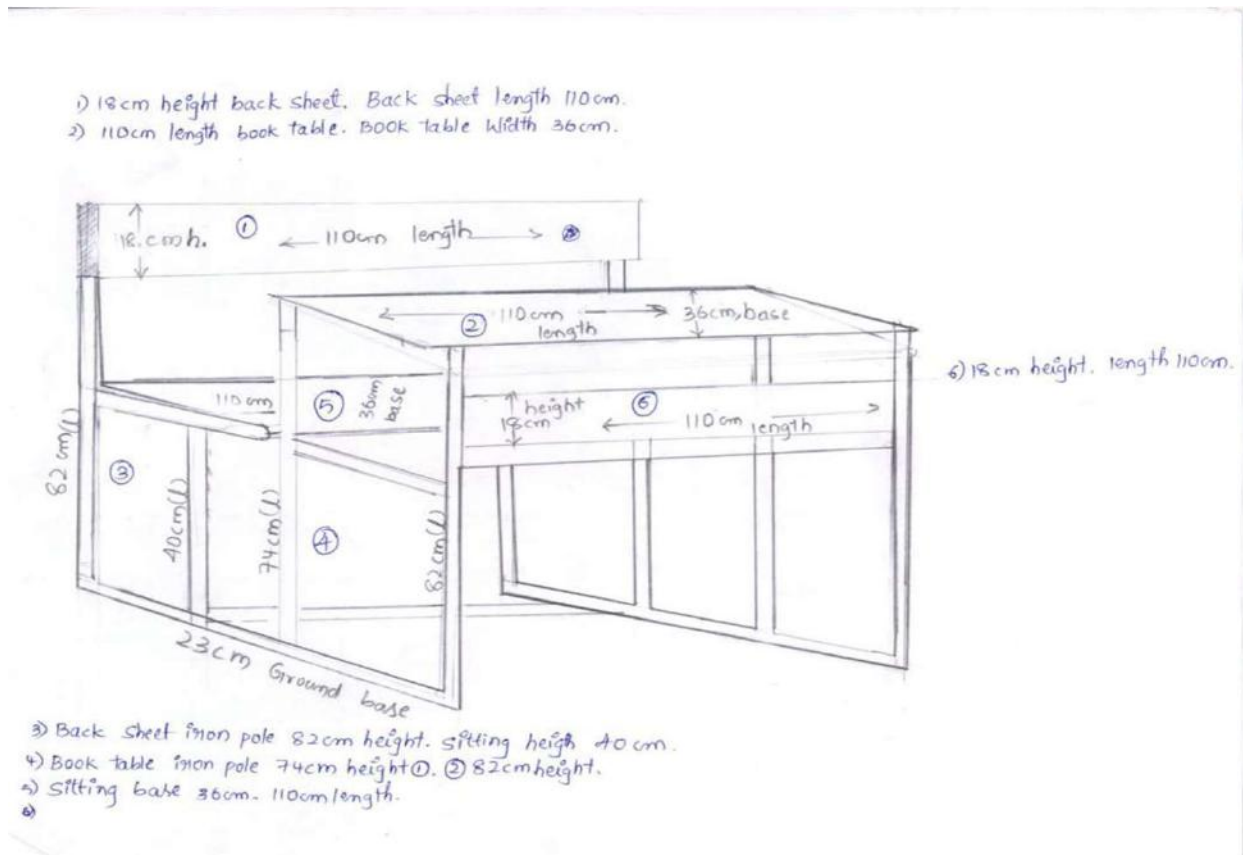 1) 18cm height back sheet. Back sheet length 110cm.
2) 110cm length book table. BOOK table Width 36cm.
18.cm h.
①
110cm length
②
110cm
length
36cm, base
6) 18cm height. length 110cm.
110cm
⑤
36cm
base
height
18cm
⑥
110cm length
82cm(l)
③
40cm(l)
74cm(l)
④
82cm(l)
23cm Ground base
3) Back sheet iron pole 82cm height. sitting heigh 40cm.
4) Book table iron pole 74cm height①. ② 82cm height.
5) Sitting base 36cm- 110cm length.
6)